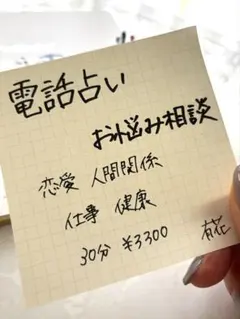 電話占い
お悩み相談
恋愛 人間関係
仕事 健康
30分 ¥3300
有花